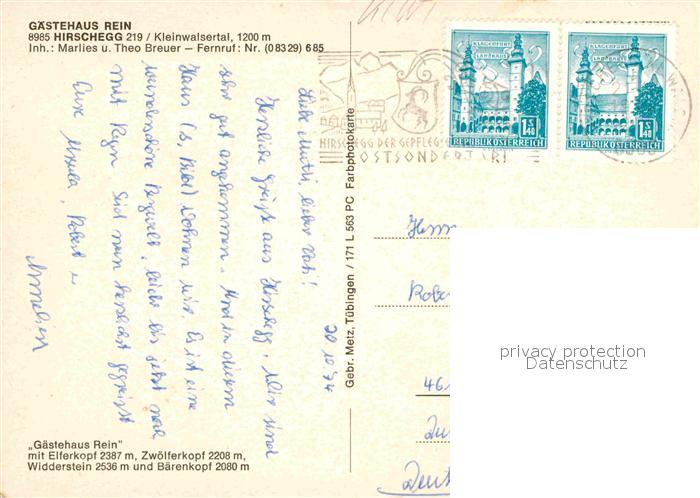 GÄSTEHAUS REIN
8985 HIRSCHEGG 219 / Kleinwalsertal, 1200 m
Inh.: Marlies u. Theo Breuer — Fernruf: Nr. (08329) 685
20.10.74
Liebe Mutti, lieber Vati!
Herzliche Grüße aus Hirschegg, Wir sind
sehr gut angekommen. Und in diesem
Haus (s. Bild) wohnen wir. Es ist eine
wunderschöne Bergwelt, leider bis jetzt noch
mit Regen. Seid nun herzlichst gegrüßt
Eure Ursula, Robert u.
Annelies
„Gästehaus Rein"
mit Elferkopf 2387 m, Zwölferkopf 2208 m,
Widderstein 2536 m und Bärenkopf 2080 m
Gebr. Metz, Tübingen / 171 L 563 PC Farbphotokarte
HIRSCHEGG DER GEPFLEG
POSTSONDERTARIF
KLAGENFURT
LANDHAUS
1 S 40
REPUBLIK ÖSTERREICH
KLAGENFURT
LANDHAUS
1 S 40
REPUBLIK ÖSTERREICH
Herrn
Robe
46
privacy protection
Datenschutz